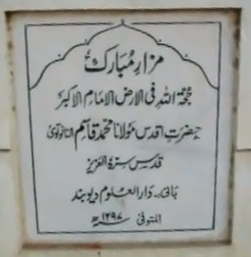 مزار مبارک
حجۃ اللہ فی الارض الامام الاکبر
حضرت اقدس مولانا محمد قاسم النانوتوی
قدس سرہ العزیز
بانی دارالعلوم دیوبند
المتوفی ۱۲۹۷ھ